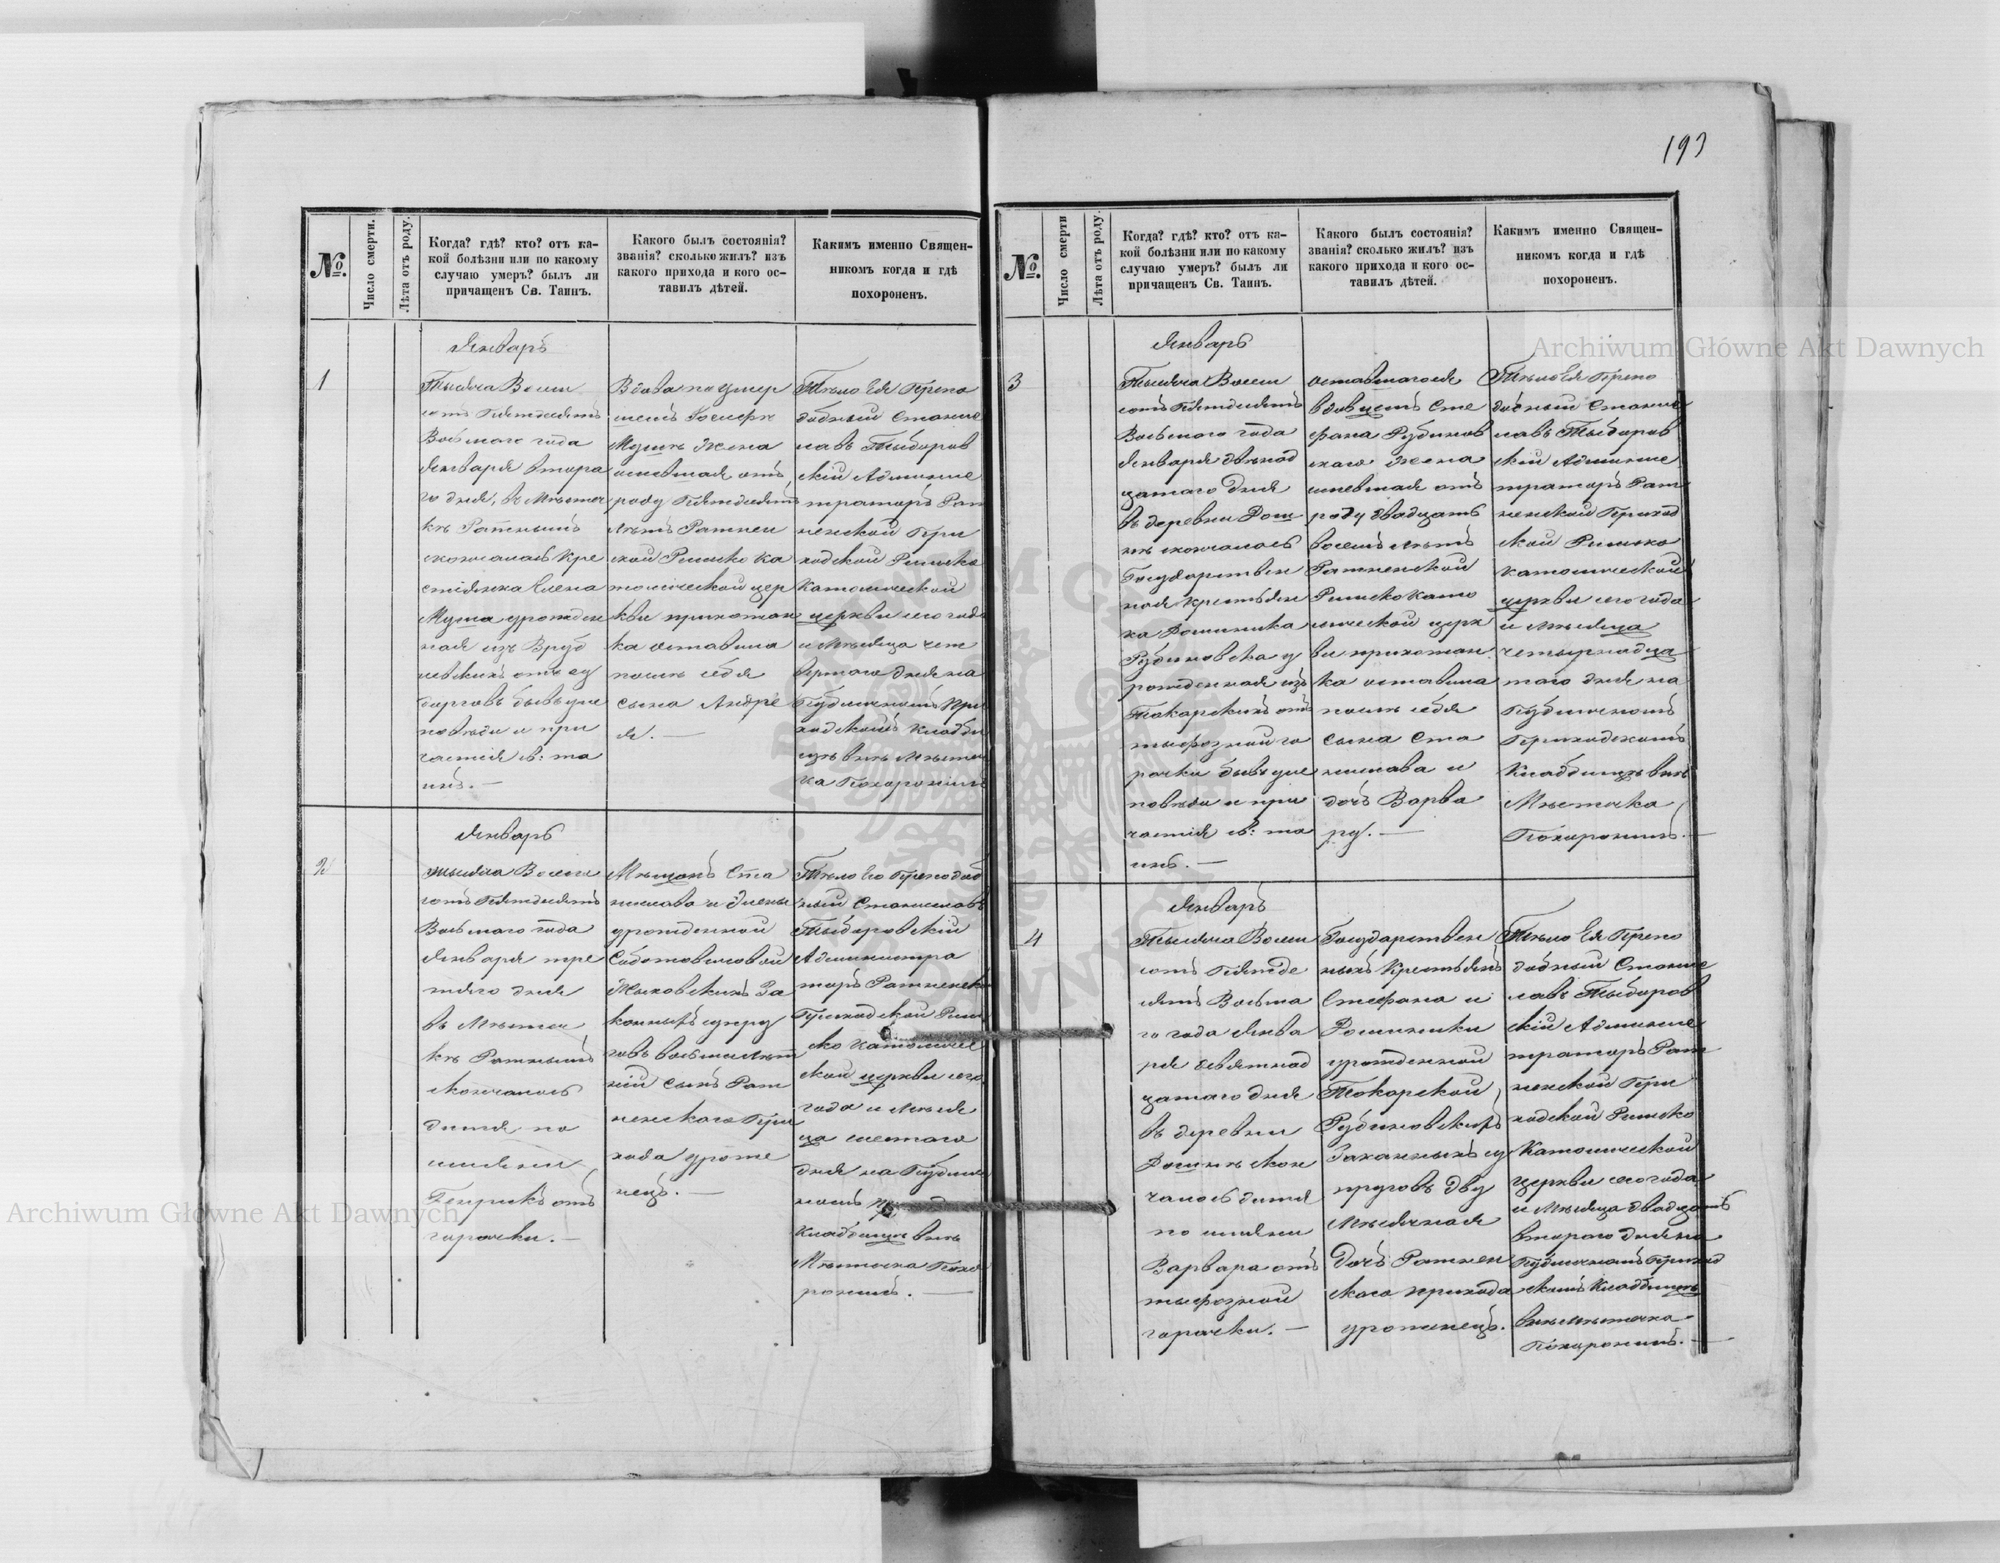 193
№.
Число смерти.
Лѣта отъ роду.
Когда? гдѣ? кто? отъ ка-
кой болѣзни или по какому
случаю умеръ? былъ ли
причащенъ Св. Таинъ.
Какого былъ состоянія?
званія? сколько жилъ? изъ
какого прихода и кого ос-
тавилъ дѣтей.
Какимъ именно Священ-
никомъ когда и гдѣ
похороненъ.
1
Январь
Тысяча Восем
сотъ Пятдесятъ
Восьмаго года
Января втора
го дня, въ Мѣстеч
кѣ Ратнымъ
скончалась Кре
стіянка Елена
Муша урожден
ная изъ Вруб
левскихъ отъ су
чархвъ бывъ уис
повѣди и при
частія св: та
инъ. —
Вдова по умер
шемъ Іосифѣ
Мушѣ Жена
имевшая отъ
роду Пятдесятъ
лѣтъ Ратнен
ской Римско Ка
толической цер
кви прихожан
ка оставила
послѣ себя
сына Андрѐ
я. —
Тѣло Ея Препо
добный Станис
лавъ Тыборов
скій Админис
траторъ Рат
ненской При
ходской Римско
Католической
церкви сего года
и Мѣсяца чет
вертаго дня на
Публичномъ При
ходскомъ Кладби
щѣ внѣ Мѣстеч
ка Похоронилъ
2
Январь
Тысяча Восем
сотъ Пятдесятъ
Восьмаго года
Января тре
тяго дня
въ Мѣстеч
кѣ Ратнымъ
скончалось
дитя по
имяни
Генрикъ отъ
горячки. —
Мѣщанъ Ста
нислава и Елены
урожденной
Жыховскихъ За
конныхъ супру
говъ восьмилѣт
ній сынъ Рат
ненскаго При
хода уроже
нецъ. —
Тѣло Его Преподоб
ный Станиславъ
Тыборовскій
Администра
торъ Ратненск
Приходской Рим
ско Католиче
ской церкви сего
года и Мѣся
ца шестаго
дня на Публич
номъ
Кладбищѣ внѣ
Мѣстечка Похо
ронилъ. —
№.
Число смерти
Лѣта отъ роду.
Когда? гдѣ? кто? отъ ка-
кой болѣзни или по какому
случаю умеръ? былъ ли
причащенъ Св. Таинъ.
Какого былъ состоянія?
званія? сколько жилъ? изъ
какого прихода и кого ос-
тавилъ дѣтей.
Какимъ именно Священ-
никомъ когда и гдѣ
похороненъ.
3
Январь
Тысяча Восем
сотъ Пятдесятъ
Восьмаго года
Января двѣнад
цатаго дня
въ деревни
скончалась
Государствен
ная крестьян
ка Доминика
Рубиновска у
рожденная изъ
Токарскихъ отъ
тыфозной го
рячки бывъ уис
повѣди и при
частія св: та
инъ. —
оставшагося
вдовцемъ Сте
фана Рубинов
скаго Жена
имевшая отъ
роду двадцать
восемь лѣтъ
Ратненской
Римскокато
лической церк
ви прихожан
ка оставила
послѣ себя
сына Ста
нислава и
дочь Варва
ру. —
Тѣло Ея Препо
добный Станис
лавъ Тыборов
скій Админис
траторъ Рат
ненской Приход
ской Римско
католической
церкви сего года
и Мѣсяца
четырнадца
таго дня на
Публичномъ
Приходскомъ
Кладбищѣ внѣ
Мѣстечка
Похоронилъ. —
4
Январь
Тысяча Восем
сотъ Пятде
сятъ Восьма
го года Янва
ря девятнад
цатаго дня
въ деревни
скон
чалось дитя
по имяни
Варвара отъ
тыфозной
горячки. —
Государствен
ныхъ Крестьянъ
Стефана и
Доминики
урожденной
Токарской
Рубиновскихъ
Законныхъ су
пруговъ дву
Мѣсячная
Дочь Ратнен
скаго прихода
уроженецъ.
Тѣло Ея Препо
добный Станис
лавъ Тыборов
скій Админис
траторъ Рат
ненской При
ходской Римско
Католической
церкви сего года
и Мѣсяца двадцать
втораго дня на
Публичномъ Приход
скомъ Кладбищѣ
внѣ Мѣстечка
Похоронилъ. —
Archiwum Główne Akt Dawnych
Archiwum Główne Akt Dawnych